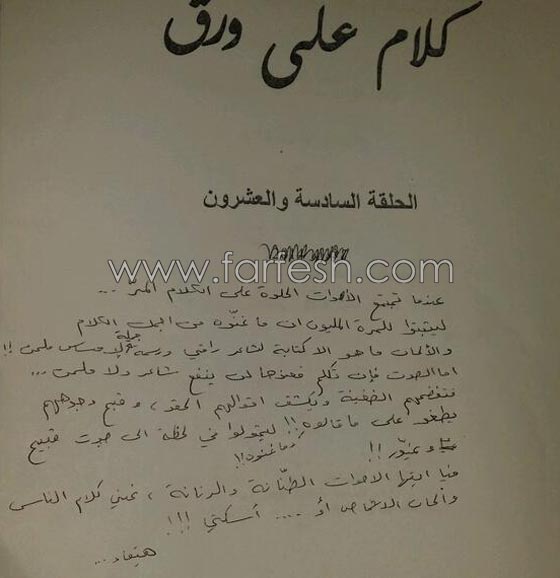 كلام على ورق
الحلقة السادسة والعشرون
www.farfesh.com
عندما تجتمع الأصوات الحلوة على الكلام المرّ ...
ليثبتوا للمرة المليون ان ما غنّوه من أجمل الكلام
والألحان ما هو الا كتابة لشاعر راقي ورسم جملة لإحساس ملحن !!
اما الصوت فإن تكلم فعندها لن ينفع شاعر ولا ملحن ...
فتفضحهم الضغينة وتكشف اقوالهم الحقد، وقبح وجوههم
يطغو على ما قالوه !! ليتحولوا في لحظة الى صوت قبيح
وما غنوه !!
فيا ايتها الاصوات الطنّانة والرنانة، غنّي كلام الناس
وألحان الاشخاص أو .... أسكتي !!!
هيفاء ...